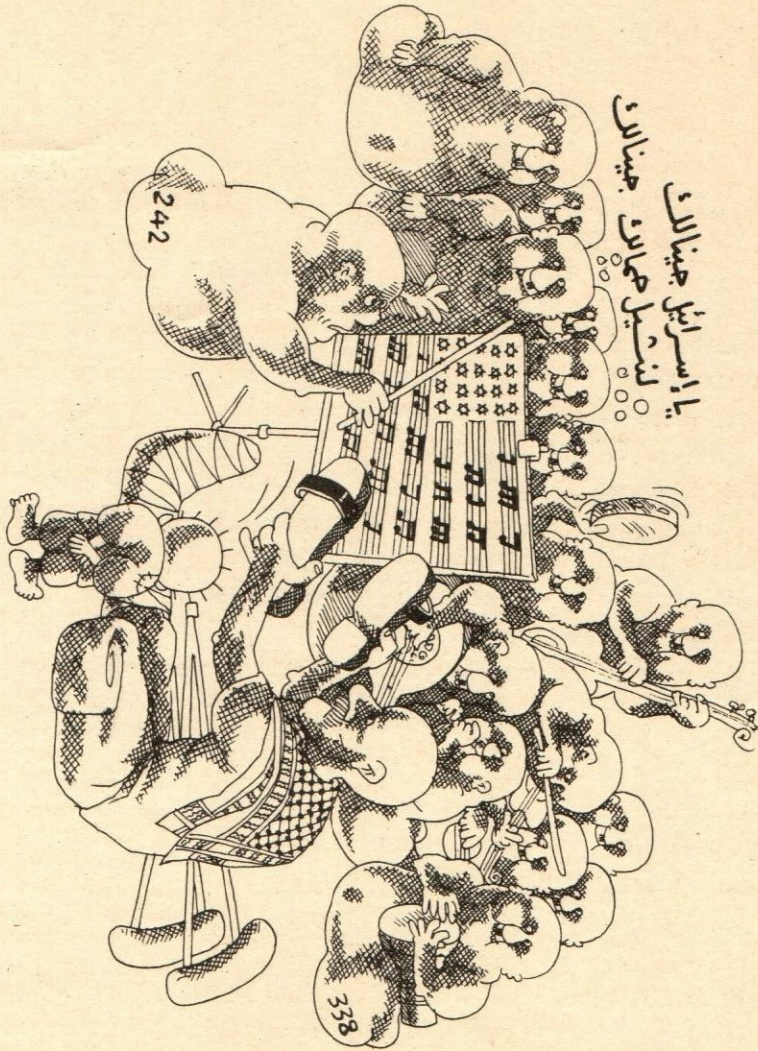 يا إسرائيل جينالك
لنشيل حمالك جينالك
242
338